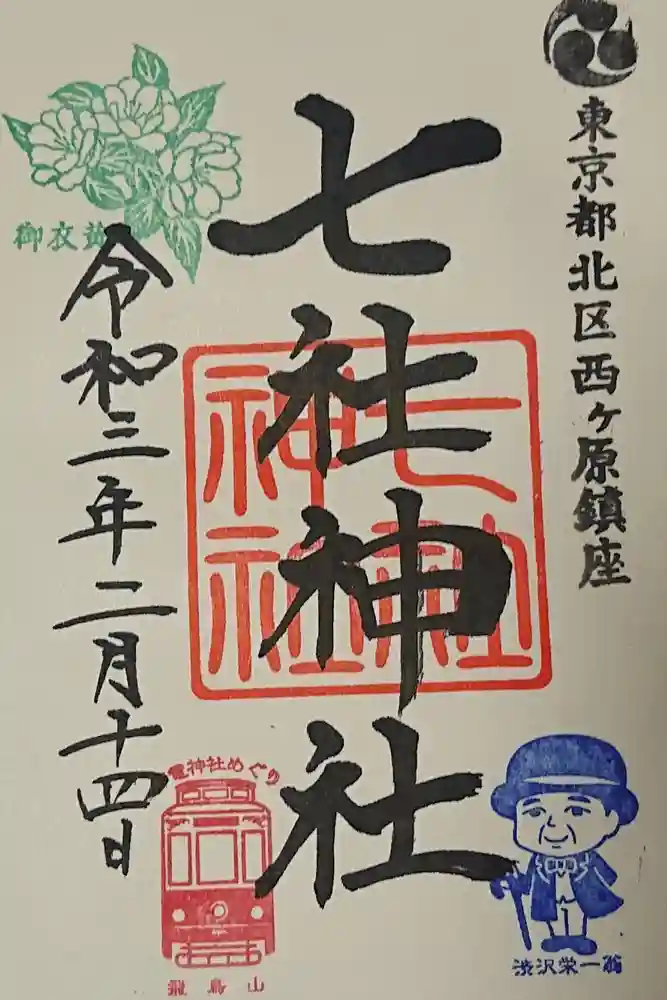 東京都北区西ヶ原鎮座
七社神社
七社
神社
令和三年二月十四日
御衣黄
電神社めぐり
飛鳥山
渋沢栄一翁